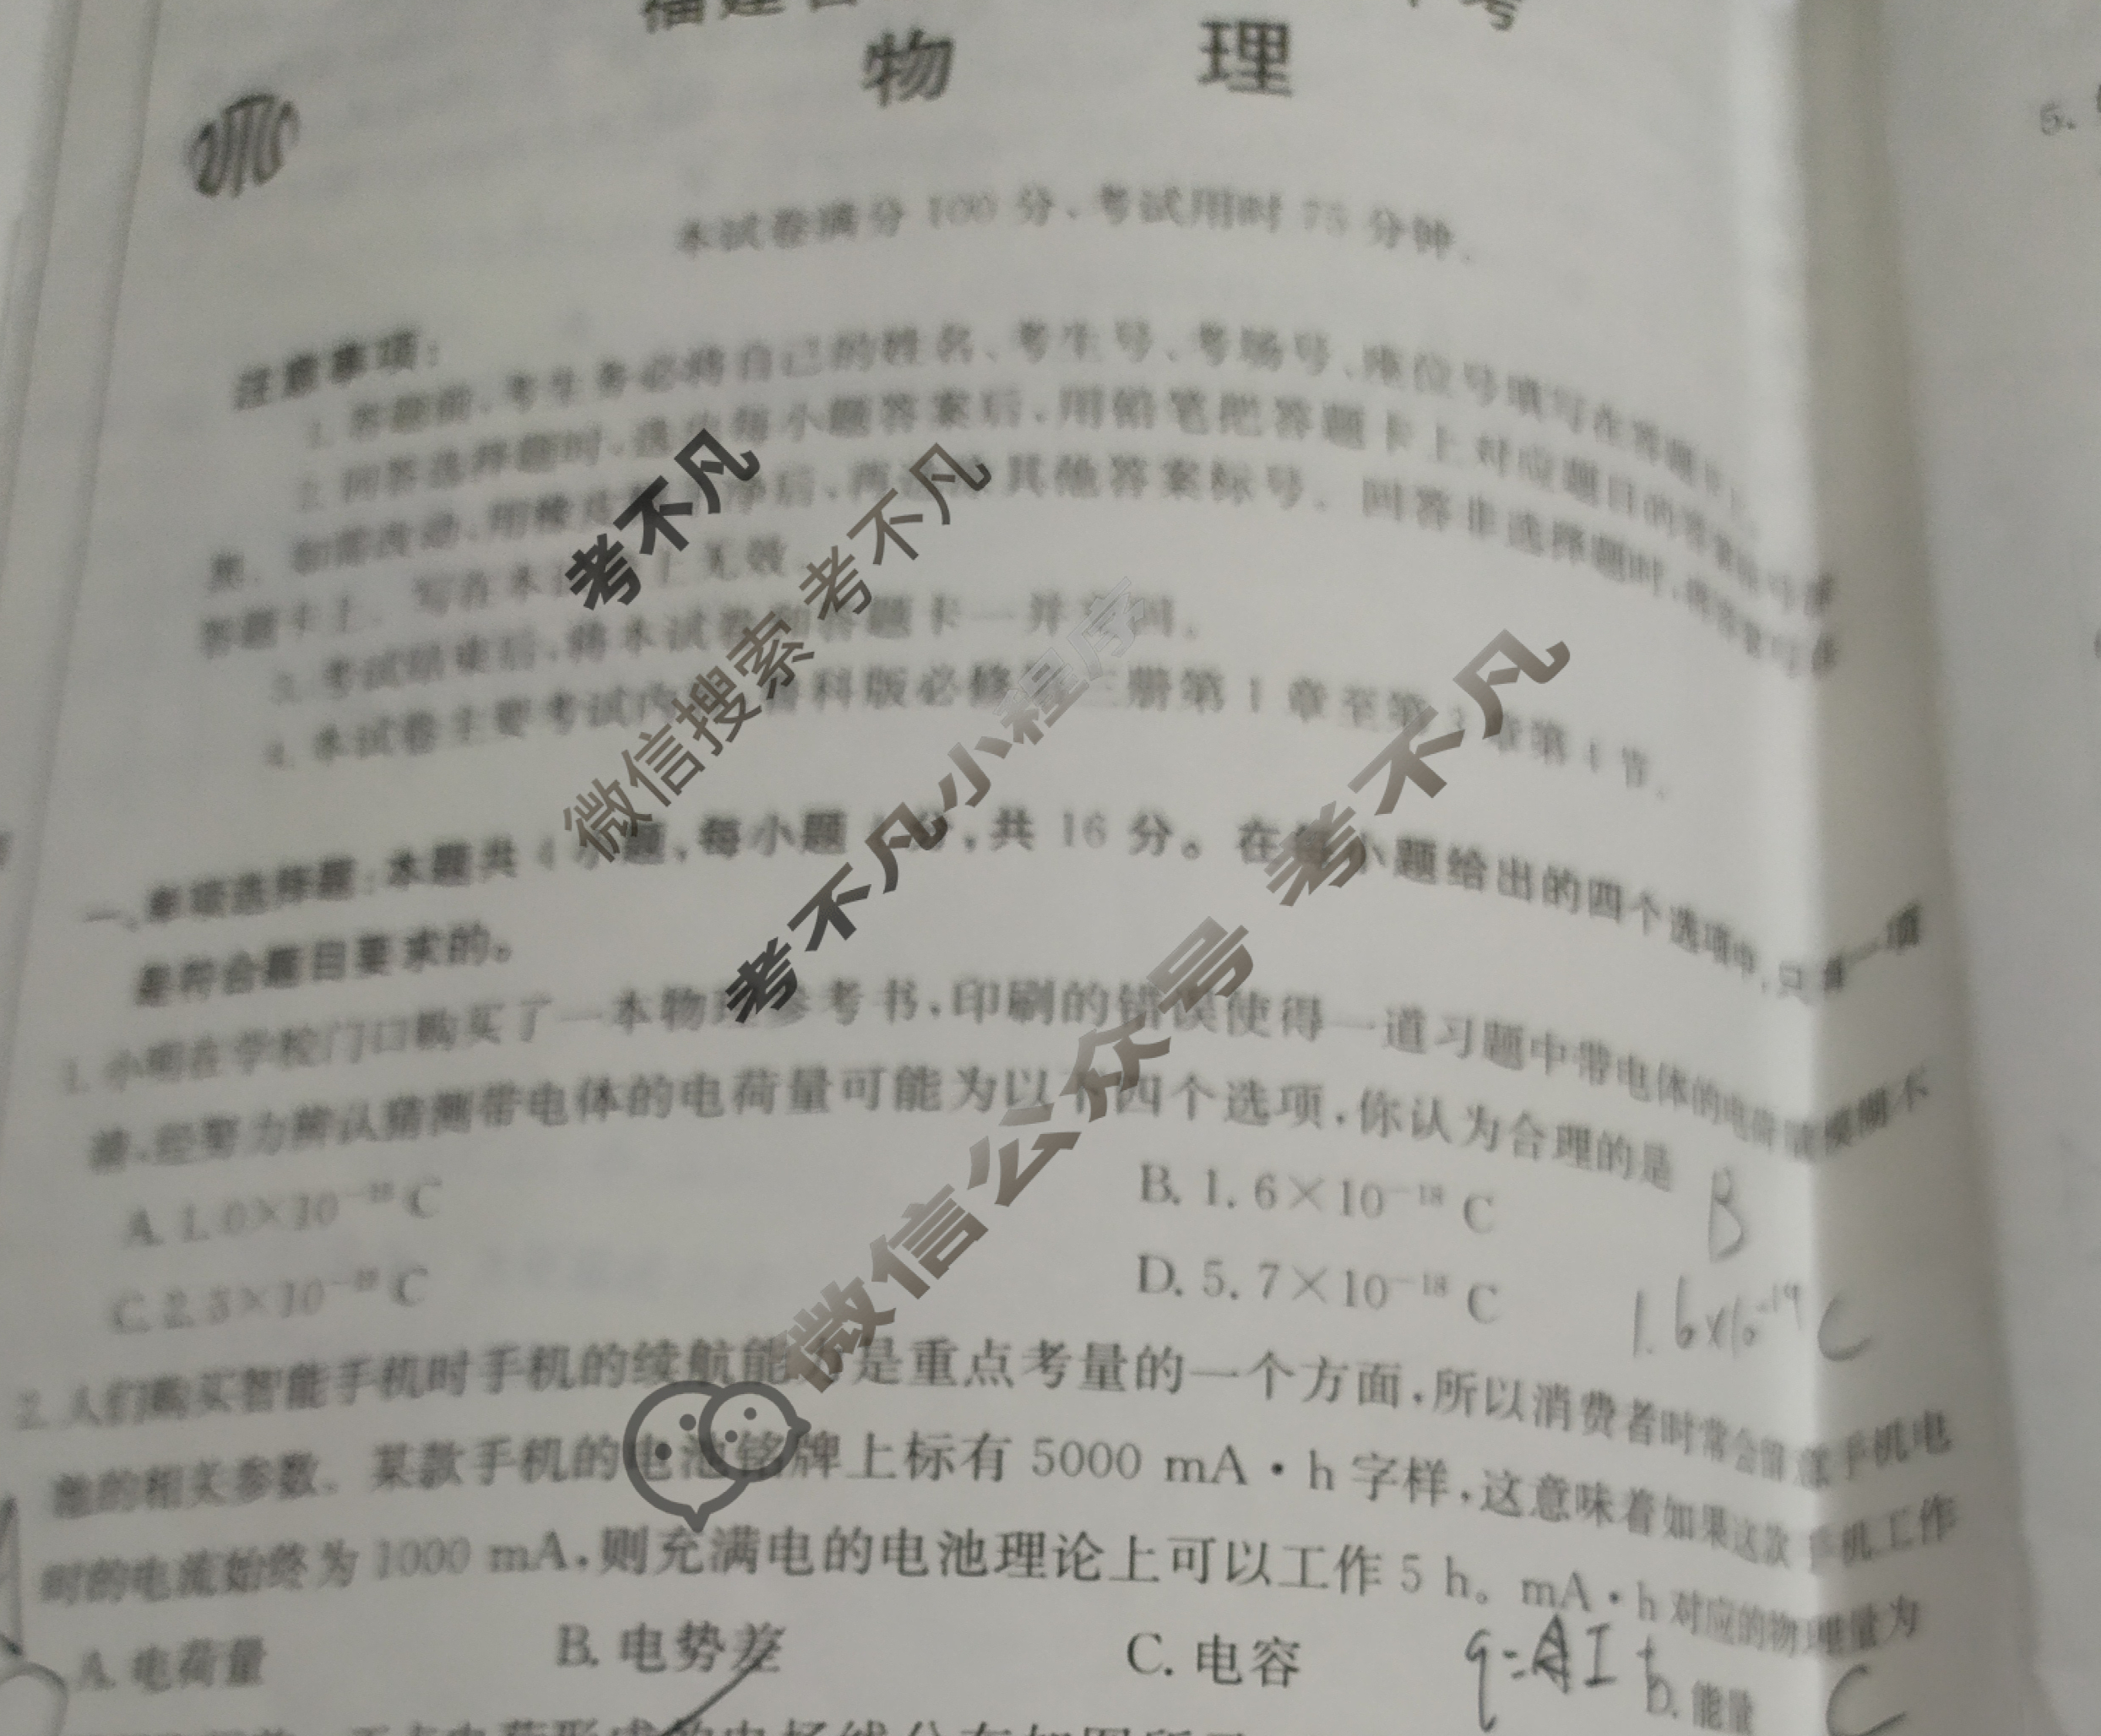 物 理
本试卷满分 100 分,考试用时 75 分钟。
注意事项:
1. 答题前,考生务必将自己的姓名、考生号、考场号、座位号填写在答题卡上。
2. 回答选择题时,选出每小题答案后,用铅笔把答题卡上对应题目的答案标号涂
黑。如需改动,用橡皮 净后,再 其他答案标号。回答非选择题时,将答案写在
答题卡上。写在本 上无效。
3. 考试结束后,将本试卷和答题卡一并交回。
4. 本试卷主要考试内 鲁科版必修 三册第 1 章至第 章第 1 节。
一、单项选择题:本题共 4 小题,每小题 分,共 16 分。在每小题给出的四个选项中,只有一项
是符合题目要求的。
1. 小明在学校门口购买了一本物理参考书,印刷的错误使得一道习题中带电体的电荷量模糊不
清,经努力辨认猜测带电体的电荷量可能为以下四个选项,你认为合理的是
B
A. 1.0×10 C
B. 1.6×10⁻¹⁸ C
C. ×10 C
D. 5.7×10⁻¹⁸ C
1.6×10⁻¹⁹ C
2. 人们购买智能手机时手机的续航能力是重点考量的一个方面,所以消费者时常会留意手机电
池的相关参数。某款手机的电池铭牌上标有 5000 mA·h 字样,这意味着如果这款手机工作
时的电流始终为 1000 mA,则充满电的电池理论上可以工作 5 h。mA·h 对应的物理量为
A. 电荷量
B. 电势差
C. 电容
D. 能量
C
考不凡
微信搜索 考不凡
考不凡小程序
微信公众号 考不凡